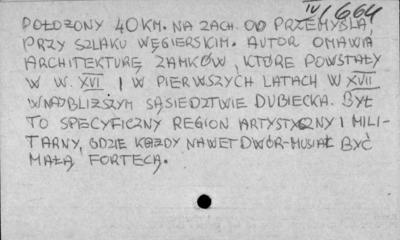 IV/664
POŁOŻONY 40 KM. NA ZACH. OD PRZEMYŚLA,
PRZY SZLAKU WĘGIERSKIM. AUTOR OMAWIA
ARCHITEKTURĘ ZAMKÓW, KTÓRE POWSTAŁY
W W. XVI I W PIERWSZYCH LATACH W XVII
W NAJBLIŻSZYM SĄSIEDZTWIE DUBIECKA. BYŁ
TO SPECYFICZNY REGION ARTYSTYCZNY I MILI-
TARNY, GDZIE KAŻDY NAWET DWÓR-MUSIAŁ BYĆ
MAŁĄ FORTECĄ.